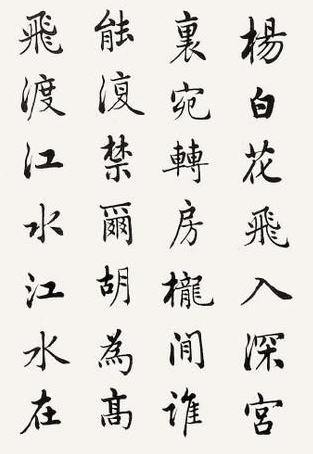 楊白花飛入深宮
裏宛轉房櫳間誰
能復禁爾胡為髙
飛渡江水江水在